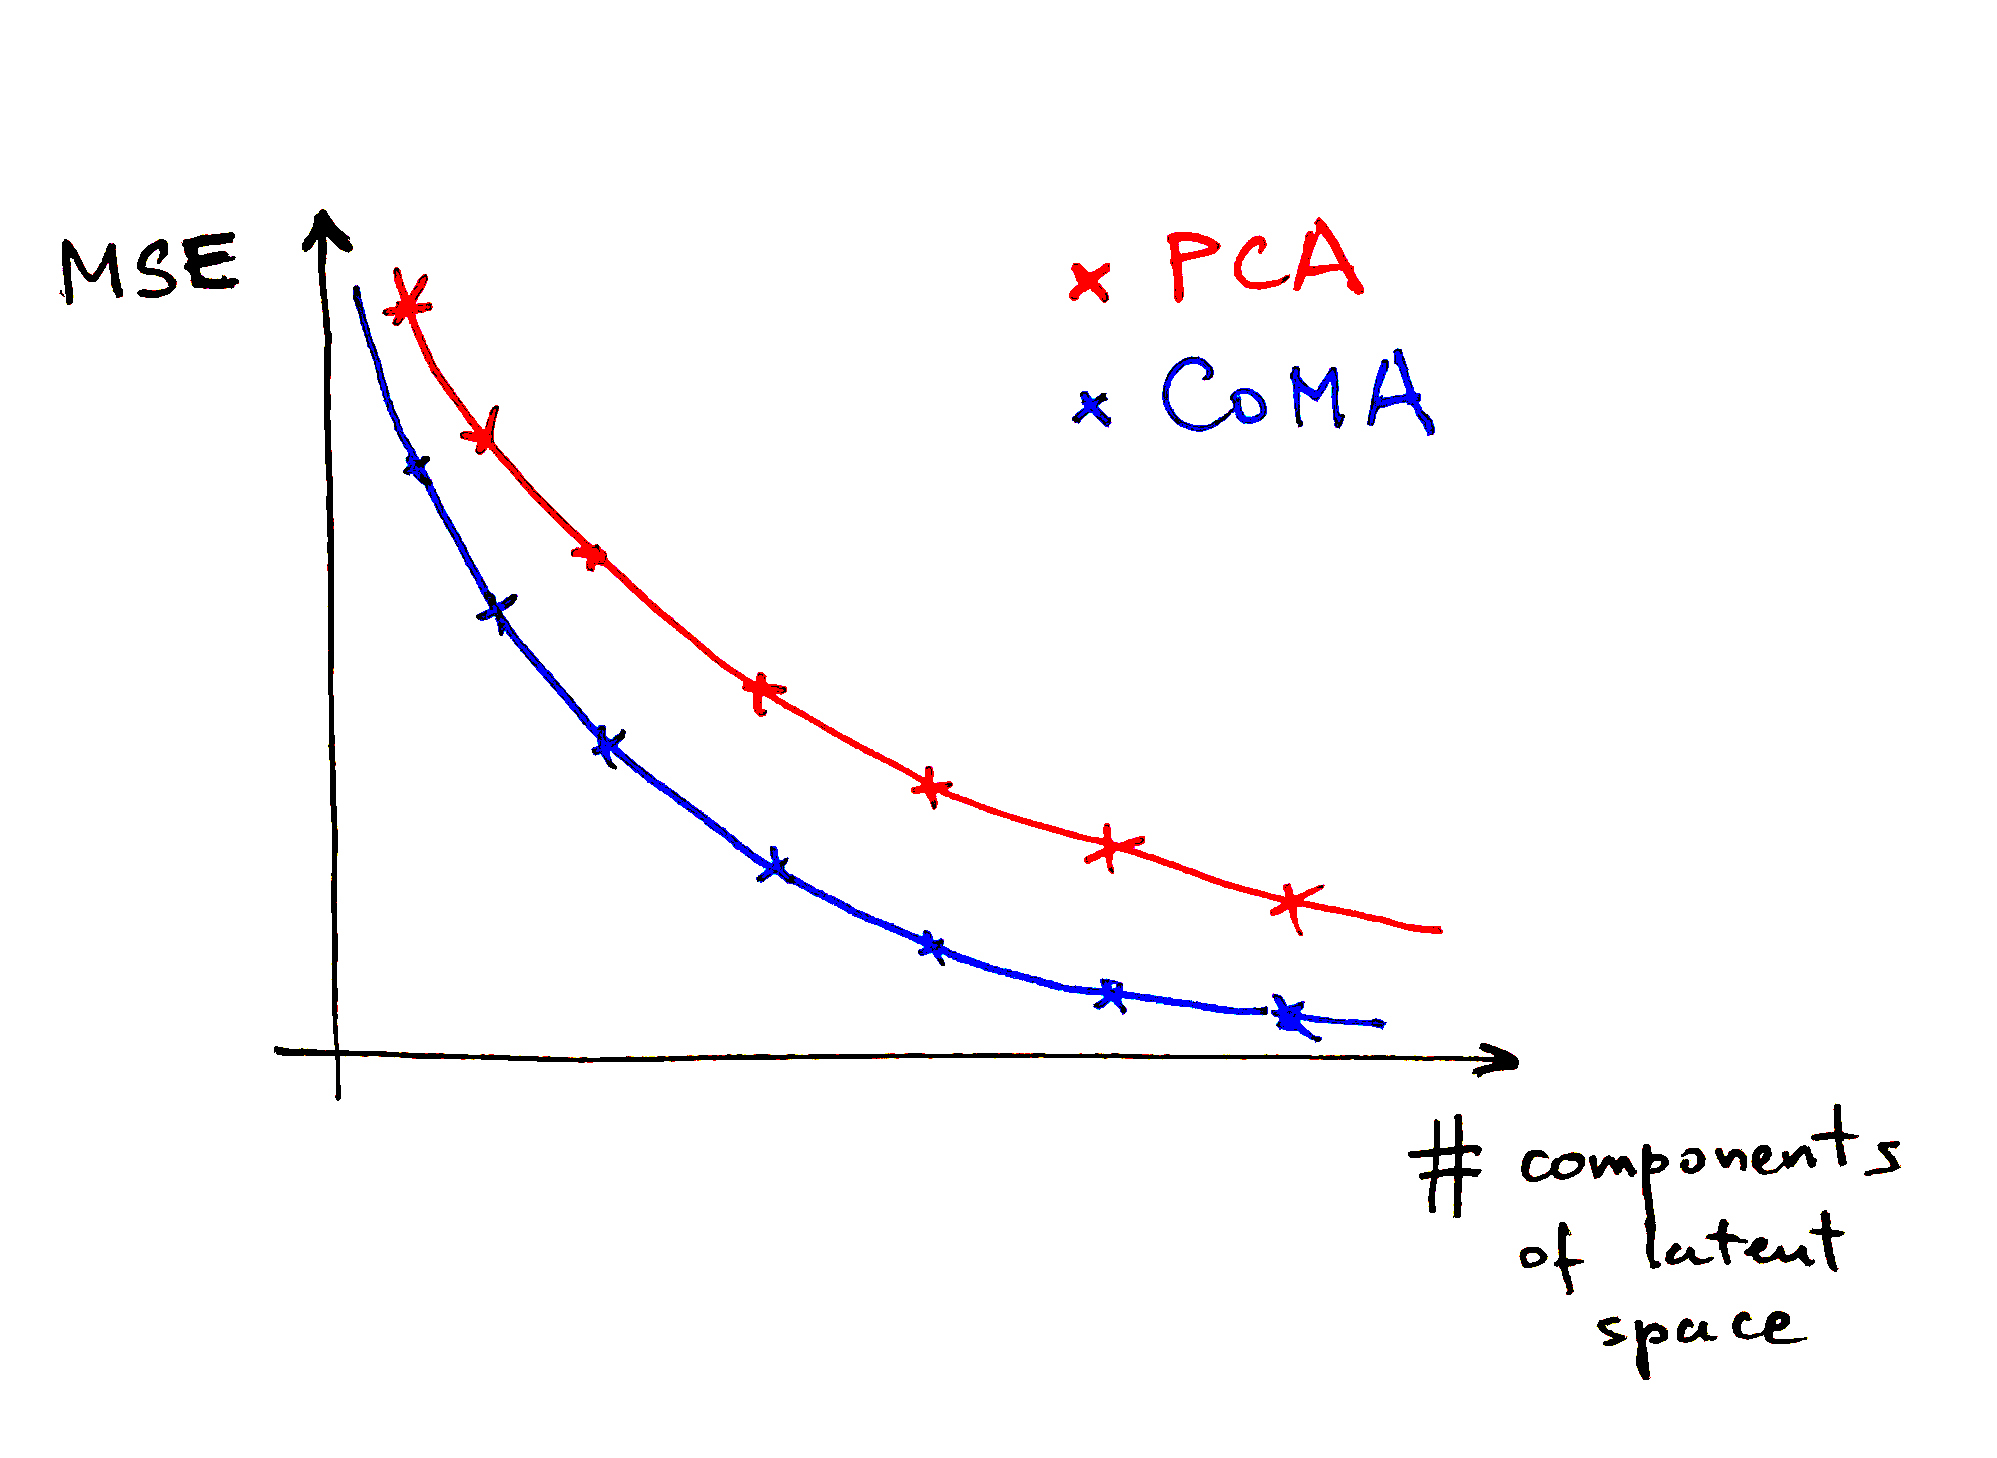 MSE
PCA
CoMA
# components
of latent
space